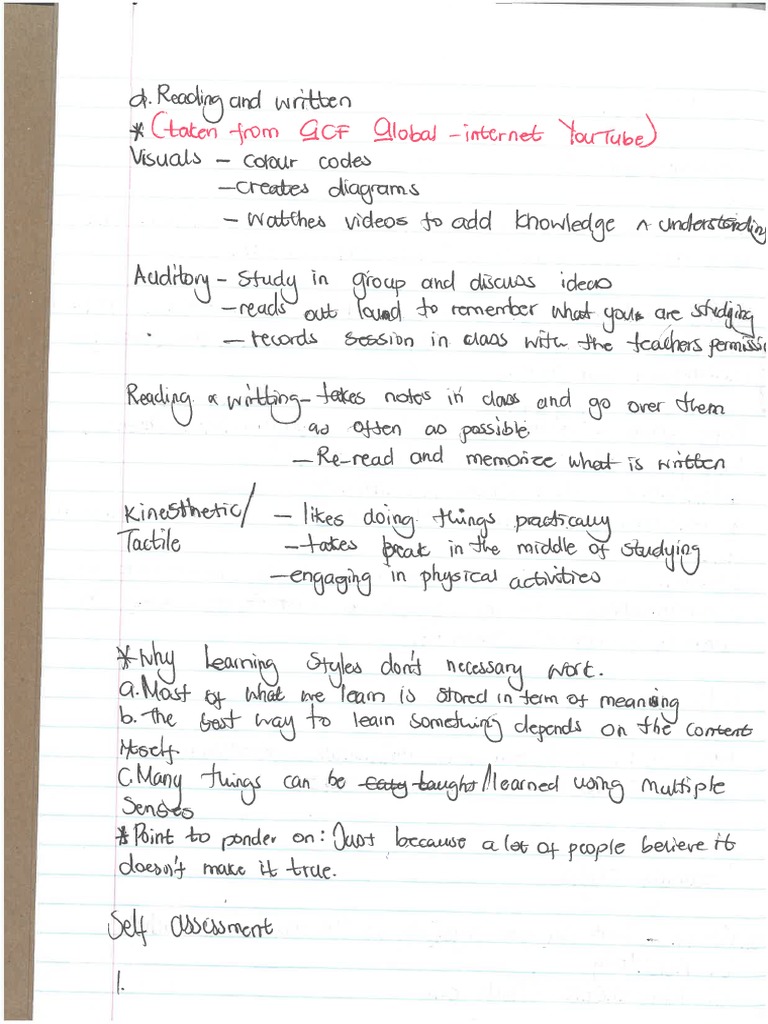 d. Reading and written
* (taken from GCF Global - internet YouTube)
Visuals - colour codes
- creates diagrams
- watches videos to add knowledge & understanding
Auditory - study in group and discuss ideas
- reads out loud to remember what you are studying
- records session in class with the teachers permissi
Reading & writting - takes notes in class and go over them
as often as possible.
- Re-read and memorize what is written
Kinesthetic/ - likes doing things practically
Tactile - takes break in the middle of studying
- engaging in physical activities
* Why Learning Styles don't necessary work.
a. Most of what we learn is stored in term of meaning
b. The best way to learn something depends on the content
itself.
C. Many things can be taught/learned using multiple
senses
* Point to ponder on: Just because a lot of people believe it
doesn't make it true.
Self assessment
1.